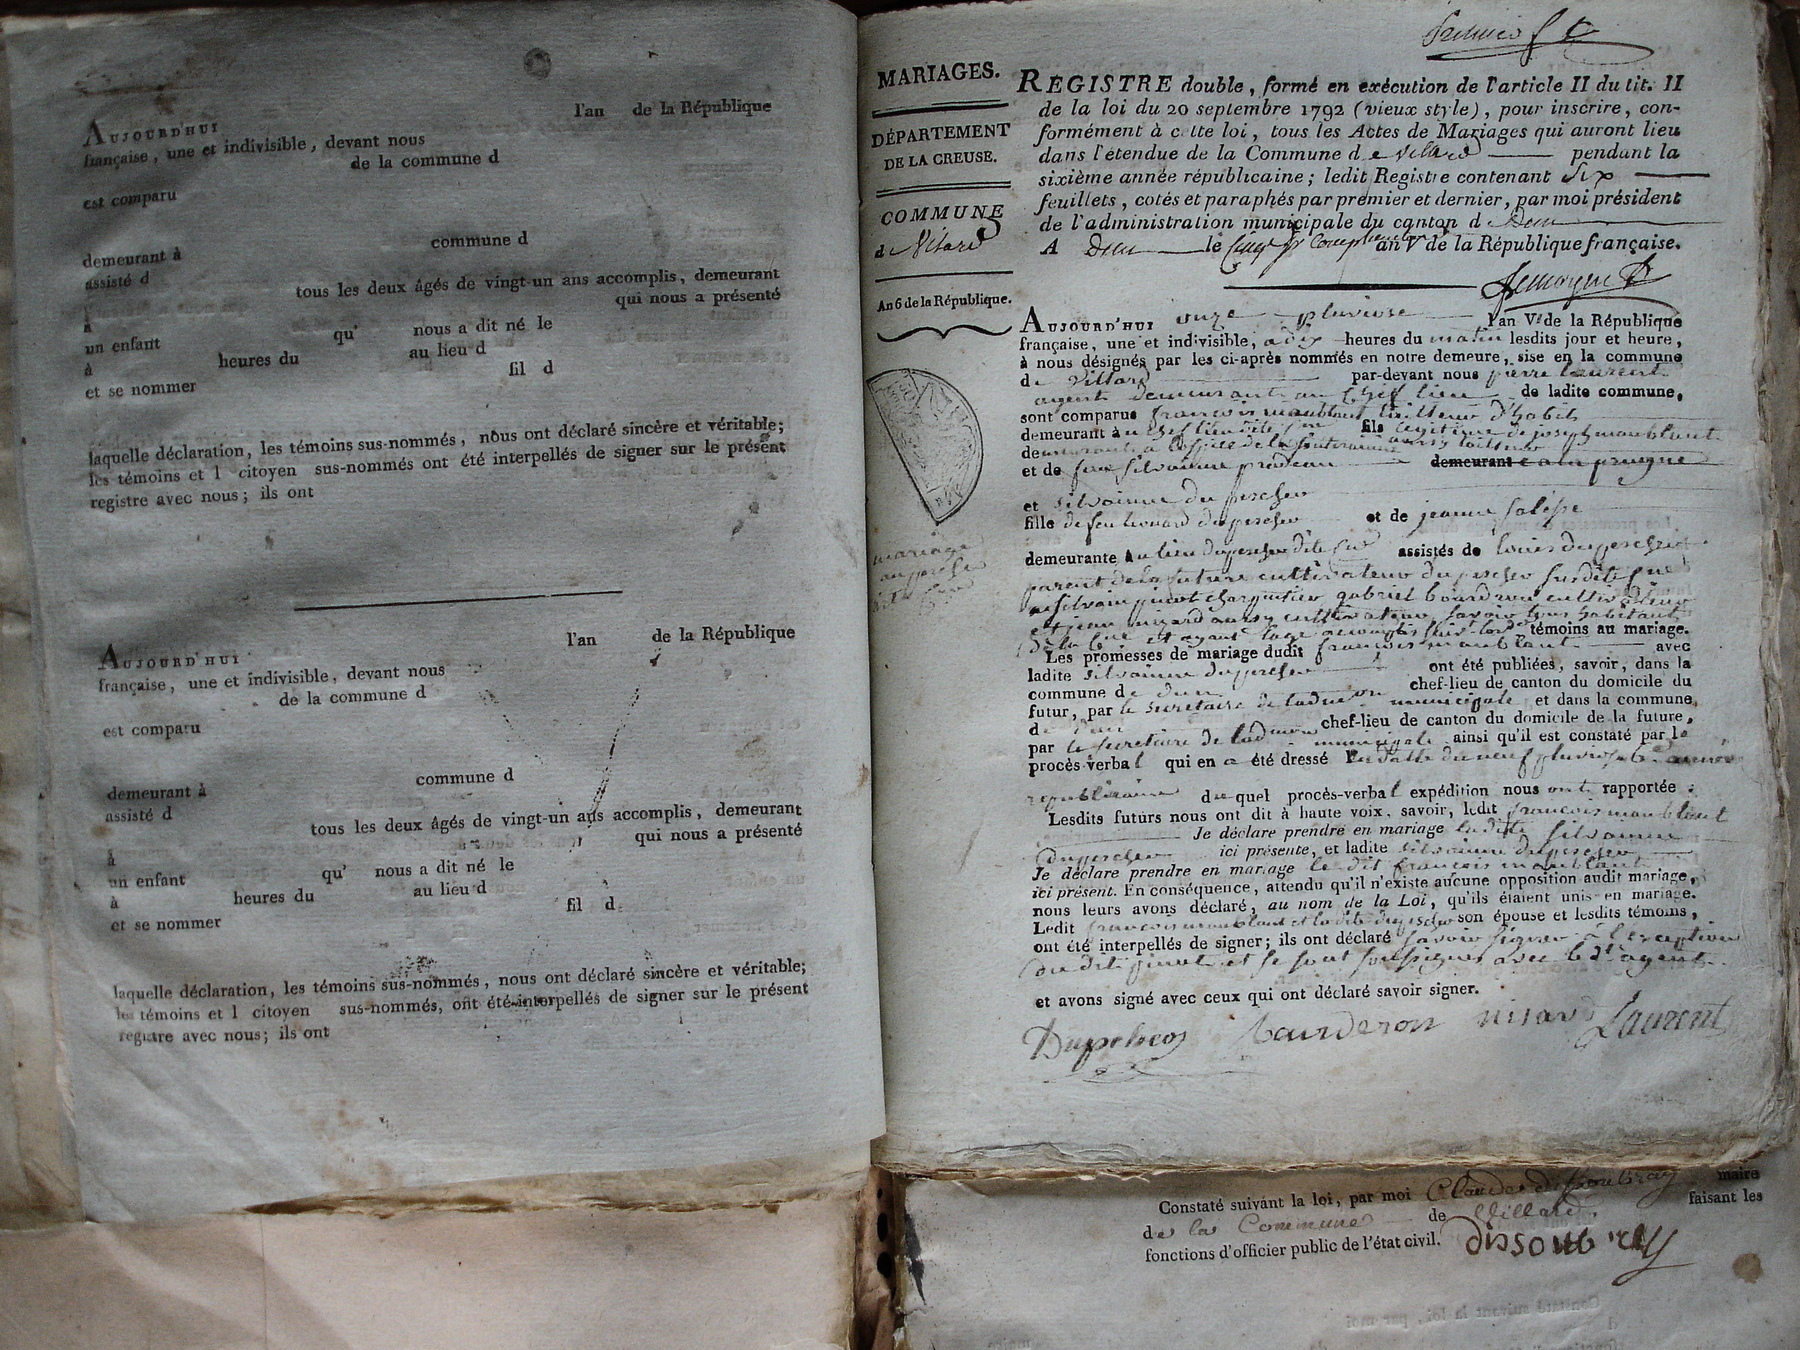 l'an de la République
AUJOURD'HUI
française, une et indivisible, devant nous
de la commune d
est comparu
commune d
demeurant à
assisté d
tous les deux âgés de vingt-un ans accomplis, demeurant
à qui nous a présenté
un enfant qu' nous a dit né le
à heures du au lieu d
et se nommer fil d
laquelle déclaration, les témoins sus-nommés, nous ont déclaré sincère et véritable;
les témoins et l citoyen sus-nommés ont été interpellés de signer sur le présent
registre avec nous; ils ont
l'an de la République
AUJOURD'HUI
française, une et indivisible, devant nous
de la commune d
est comparu
commune d
demeurant à
assisté d
tous les deux âgés de vingt-un ans accomplis, demeurant
à qui nous a présenté
un enfant qu' nous a dit né le
à heures du au lieu d
et se nommer fil d
laquelle déclaration, les témoins sus-nommés, nous ont déclaré sincère et véritable;
les témoins et l citoyen sus-nommés, ont été interpellés de signer sur le présent
registre avec nous; ils ont
MARIAGES.
DÉPARTEMENT
DE LA CREUSE.
COMMUNE
de Vilard
An 6 de la République.
mariage
REGISTRE double, formé en exécution de l'article II du tit. II
de la loi du 20 septembre 1792 (vieux style), pour inscrire, con-
formément à cette loi, tous les Actes de Mariages qui auront lieu
dans l'étendue de la Commune de Villard pendant la
sixième année républicaine; ledit Registre contenant Six
feuillets, cotés et paraphés par premier et dernier, par moi président
de l'administration municipale du canton d Dun
A Dun le an V de la République française.
Lemoyne
AUJOURD'HUI onze pluviose l'an VI de la République
française, une et indivisible, a dix heures du matin lesdits jour et heure,
à nous désignés par les ci-après nommés en notre demeure, sise en la commune
de Villard par-devant nous pierre laurent
agent demeurant au chef lieu de ladite commune,
sont comparus françois maublant tailleur d'habits
demeurant au chef lieu fils legitime de joseph maublant
demeurant
et de feue silvainne demeurant
et silvainne duperchev
fille de feu leonard duperchev et de jeanne
demeurante au lieu duperchev assistés de louis duperchev
parent de la future cultivateur du perchev susdite
silvain pinot charpentier gabriel bourderon cultivateur
et jean nizard aussy cultivateur tous habitant
témoins au mariage.
Les promesses de mariage dudit françois maublant avec
ladite silvainne duperchev ont été publiées, savoir, dans la
commune de dun chef-lieu de canton du domicile du
futur, par le secretaire de ladmon municipale et dans la commune
de dun chef-lieu de canton du domicile de la future,
par le secretaire de ladmon municipale ainsi qu'il est constaté par le
procès-verbal qui en a été dressé en datte du neuf pluviose 6e année
republicaine du quel procès-verbal expédition nous ont rapportée.
Lesdits futurs nous ont dit à haute voix, savoir, ledit francois maublant
Je déclare prendre en mariage ladite silvainne
duperchev ici présente, et ladite silvainne duperchev
Je déclare prendre en mariage le dit françois maublant
ici présent. En conséquence, attendu qu'il n'existe aucune opposition audit mariage,
nous leurs avons déclaré, au nom de la Loi, qu'ils étaient unis en mariage.
Ledit françois maublant et ladite duperchev son épouse et lesdits témoins,
ont été interpellés de signer; ils ont déclaré savoir signer à l'exception
du dit pinot et se sont soussignés avec le dt agent
et avons signé avec ceux qui ont déclaré savoir signer.
Bourderon nizard Laurent
Constaté suivant la loi, par moi Claude dissoubray maire
de la Commune de Villard faisant les
fonctions d'officier public de l'état civil. dissoubray